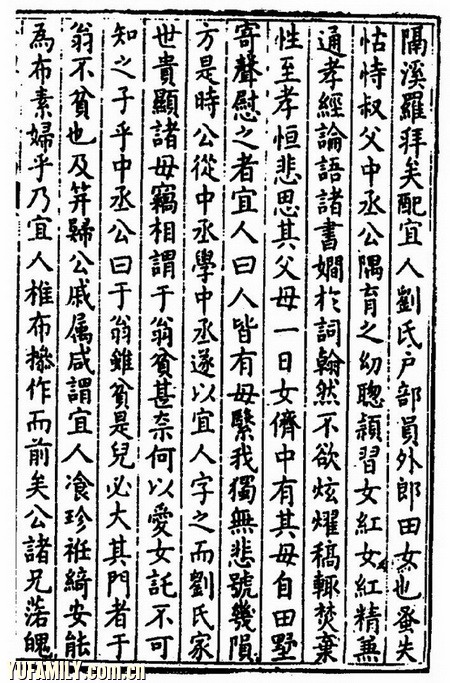 隔溪羅拜矣配宜人劉氏戸部員外郎田女也蚤失
怙恃叔父中丞公隅育之幼聰頴習女紅女紅精兼
通孝經論語諸書嫺於詞翰然不欲炫燿稿輒焚棄
性至孝恒悲思其父母一日女儕中有其母自田墅
寄聲慰之者宜人曰人皆有母繄我獨無悲號幾隕
方是時公從中丞學中丞遂以宜人字之而劉氏家
世貴顯諸母竊相謂于翁貧甚柰何以愛女託不可
知之子乎中丞公曰于翁雖貧是兒必大其門者于
翁不貧也及笄歸公戚属咸謂宜人飡珍袵綺安能
為布素婦乎乃宜人椎布摻作而前矣公諸兄落魄
YUFAMILY.com.cn